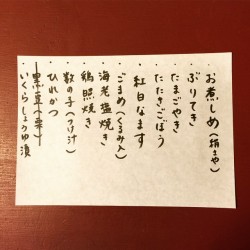 ・お煮しめ(絹さや)
・ぶりてき
・たまごやき
・たたきごぼう
・紅白なます
・ごまめ(くるみ入)
・海老塩焼き
・鶏照焼き
・数の子(つけ汁)
・ひれかつ
・黒豆(栗)
・いくらしょうゆ漬